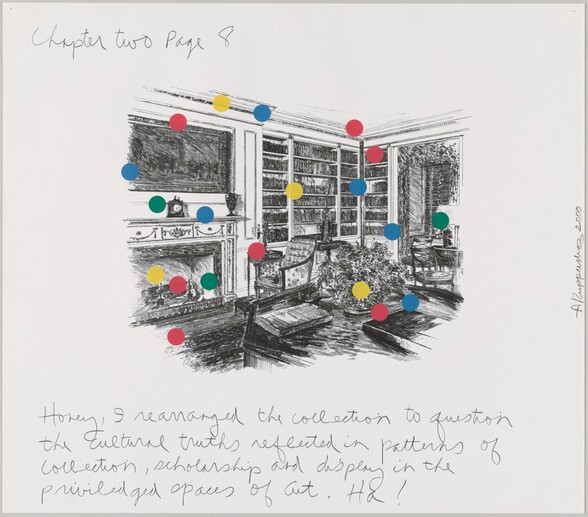 Chapter two Page 8
Honey, I rearranged the collection to question
the cultural truths reflected in patterns of
collection, scholarship and display in the
priviledged spaces of art. Ha!
A Ruppersberg 2000